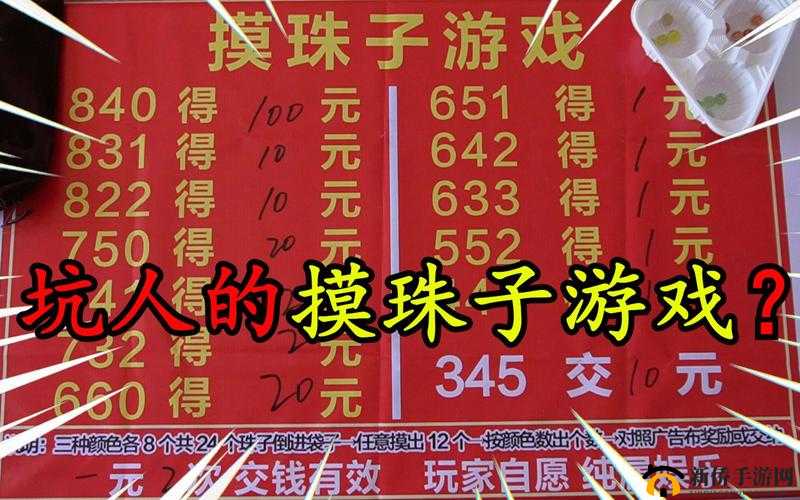 摸珠子游戏
840 得 100 元
831 得 10 元
822 得 10 元
750 得 20 元
41
732
660 得 20 元
651 得 1 元
642 得 1 元
633 得 1 元
552 得 1 元
345 交 10 元
坑人的摸珠子游戏？
三种颜色各8个共24个珠子倒进袋子一任意摸出12个一按颜色数出个数一对照广告布奖励或交
一元2次 交钱有效 玩家自愿 纯属娱乐
新侨手游网